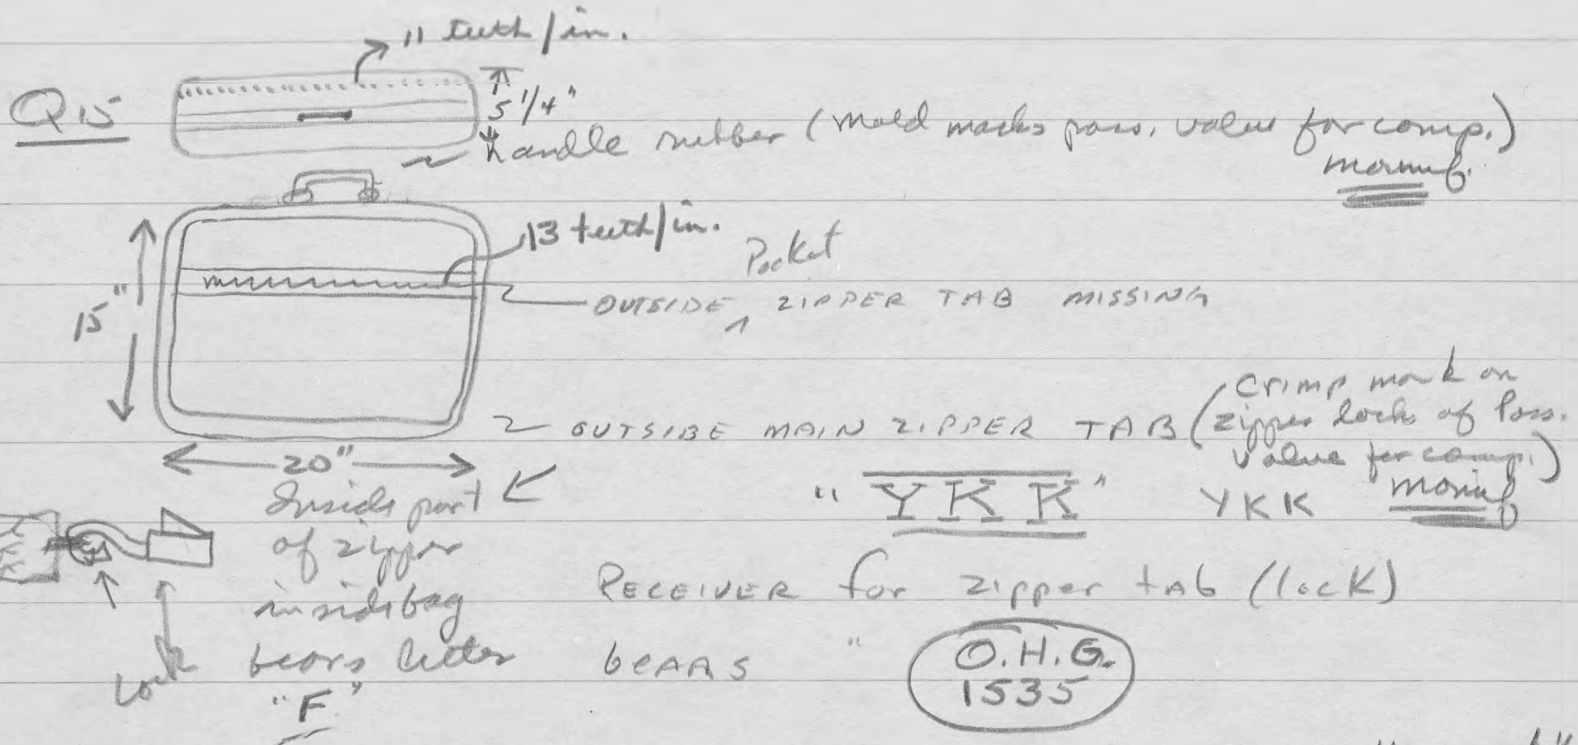 11 teeth/in.
Q15
5 1/4"
handle rubber (mold marks poss. value for comp.)
manuf.
13 teeth/in.
Pocket
OUTSIDE ^ ZIPPER TAB MISSING
15"
20"
OUTSIDE MAIN ZIPPER TAB (Crimp mark on
zipper lock of Poss.
value for comp.)
manuf
"YKK" YKK
Inside part
of zipper
inside bag
bears letter
"F"
Lock
RECEIVER for zipper tab (lock)
bears "O.H.G.
1535